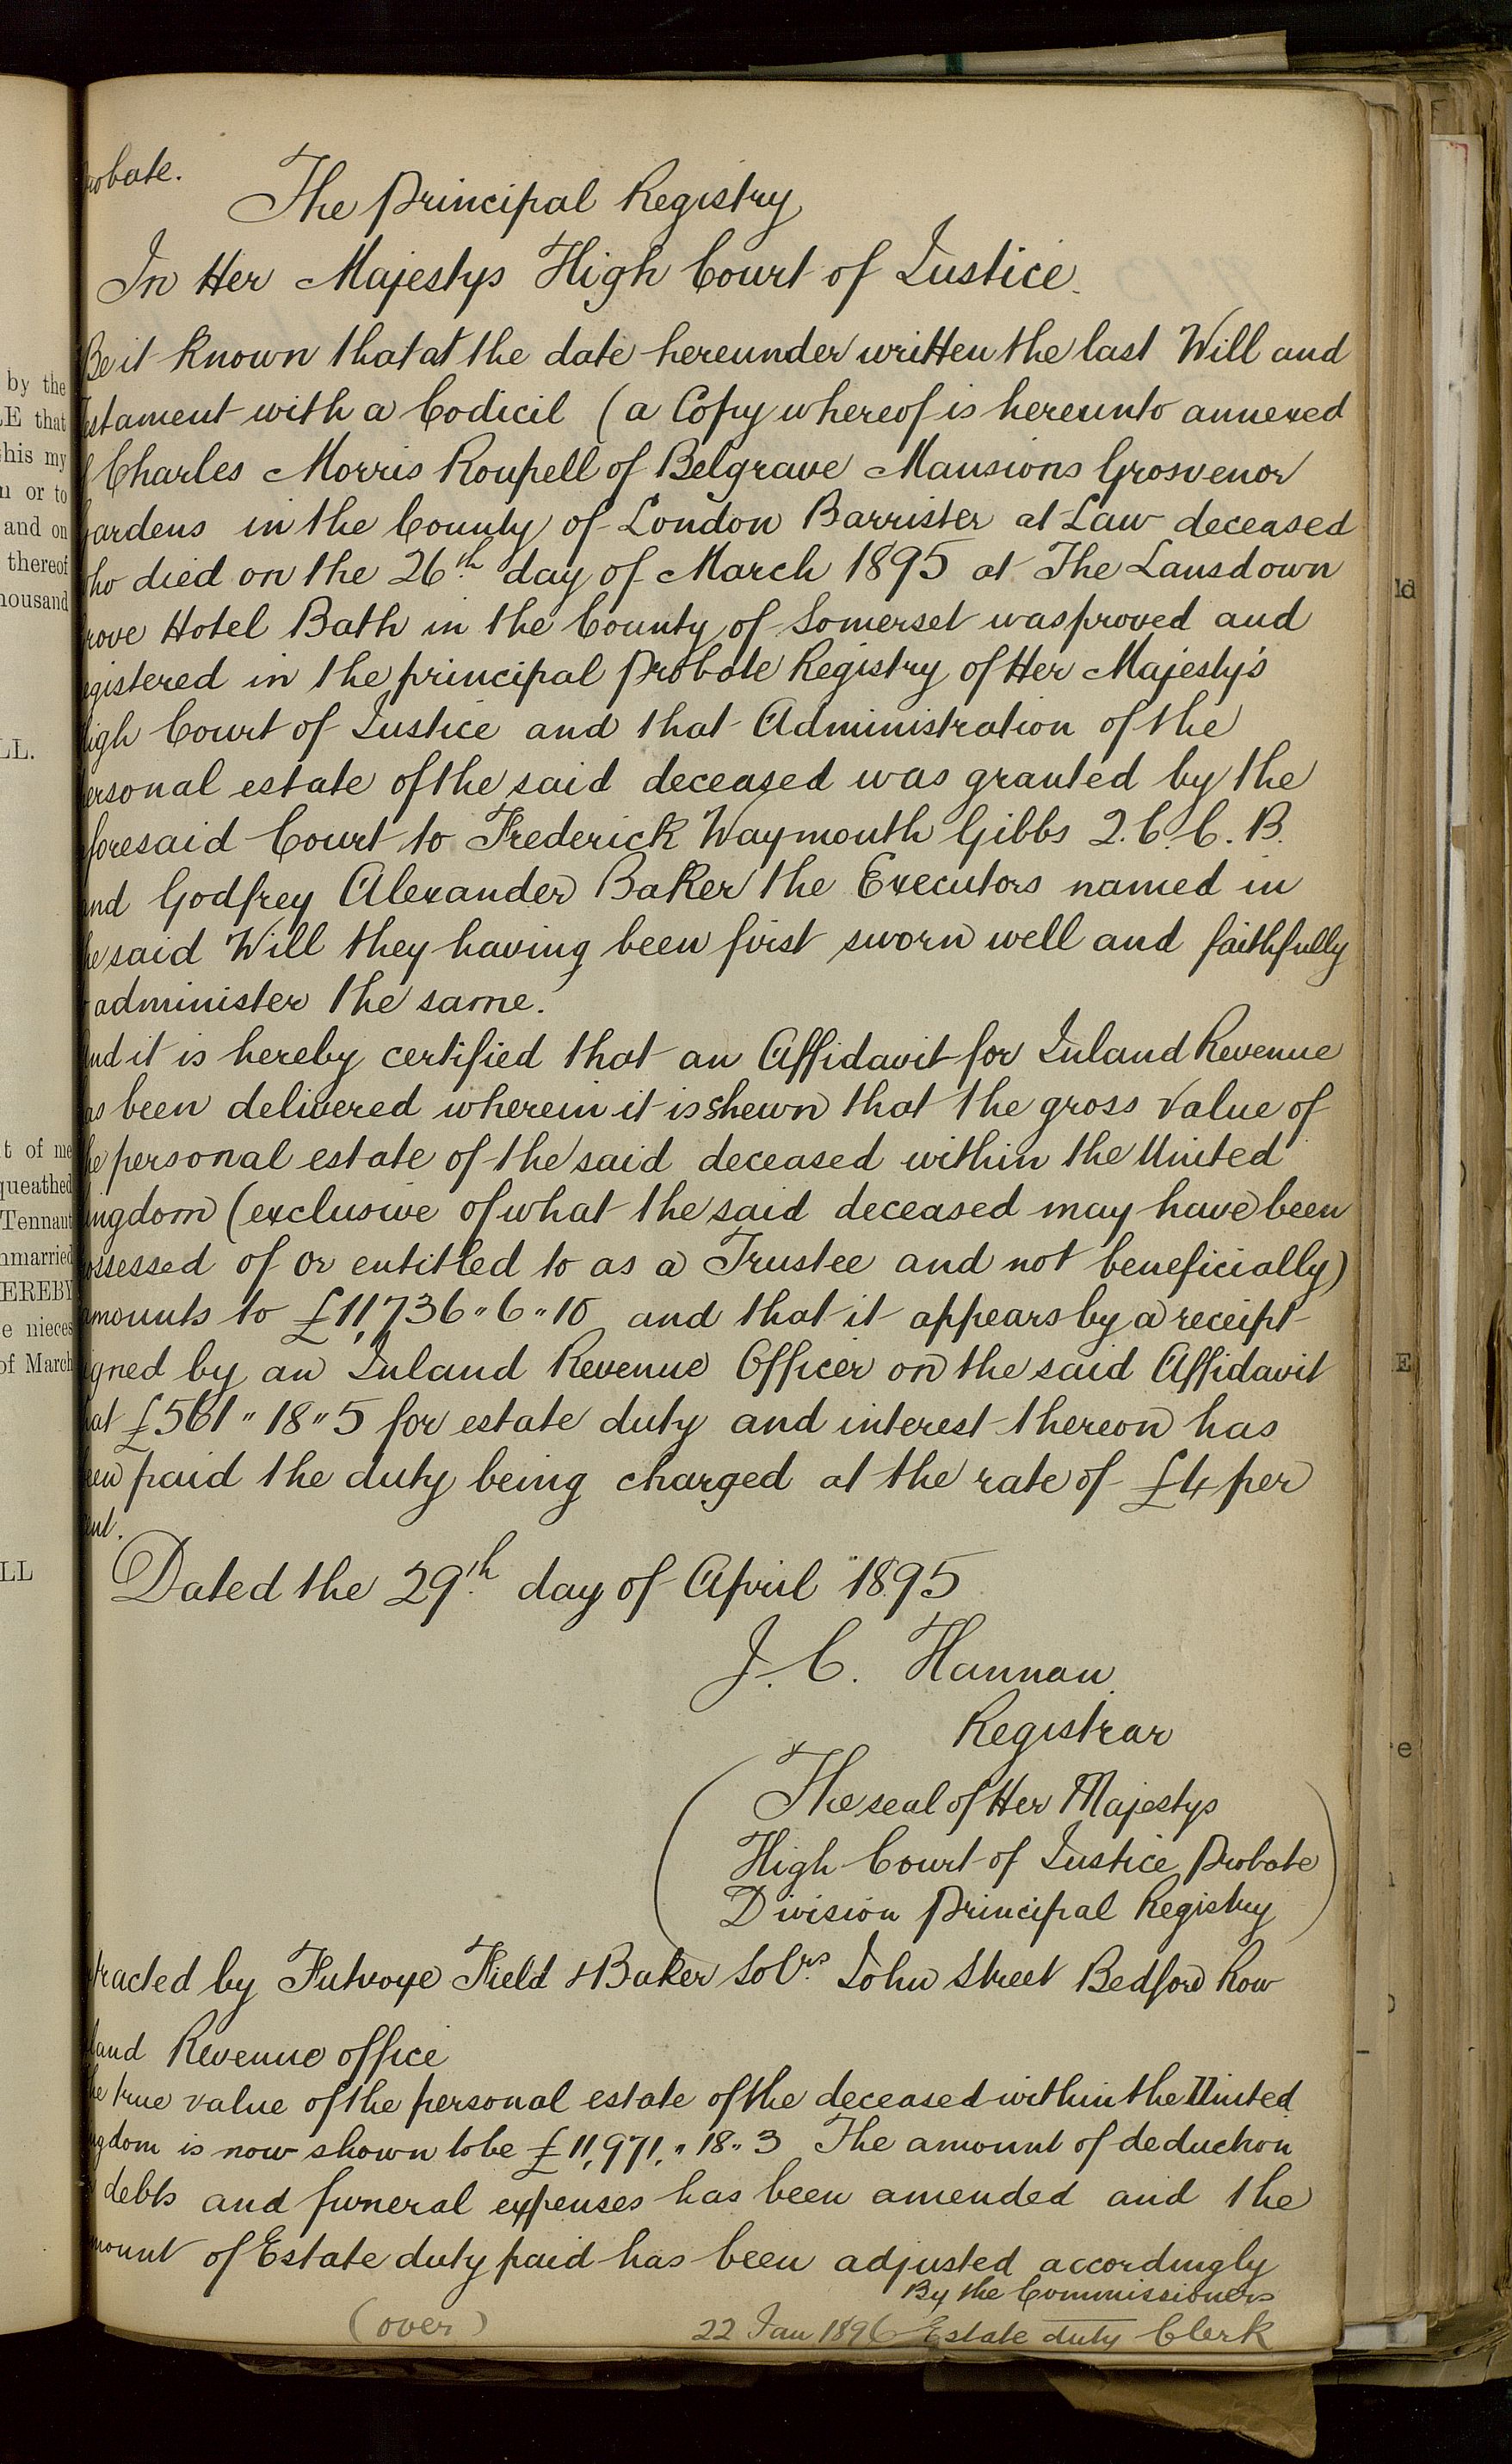 robate.
The Principal Registry
In Her Majestys High Court of Justice.
Be it known that at the date hereunder written the last Will and
estament with a Codicil (a Copy whereof is hereunto annexed
Charles Morris Roupell of Belgrave Mansions Grosvenor
ardens in the County of London Barrister at Law deceased
ho died on the 26th day of March 1895 at The Lansdown
rove Hotel Bath in the County of Somerset was proved and
egistered in the principal Probate Registry of Her Majesty's
igh Court of Justice and that Administration of the
ersonal estate of the said deceased was granted by the
foresaid Court to Frederick Waymouth Gibbs Q.C. C.B.
and Godfrey Alexander Baker the Executors named in
he said Will they having been first sworn well and faithfully
administer the same.
and it is hereby certified that an Affidavit for Inland Revenue
as been delivered wherein it is shewn that the gross value of
he personal estate of the said deceased within the United
ingdom (exclusive of what the said deceased may have been
ossessed of or entitled to as a Trustee and not beneficially)
amounts to £11,736 " 6 " 10 and that it appears by a receipt
igned by an Inland Revenue Officer on the said Affidavit
hat £561 " 18 " 5 for estate duty and interest thereon has
een paid the duty being charged at the rate of £4 per
ent.
Dated the 29th day of April 1895
J. C. Hannan
Registrar
(The seal of Her Majestys
High Court of Justice Probate
Division Principal Registry)
tracted by Futvoye Field & Baker Solrs. John Street Bedford Row
land Revenue office
he true value of the personal estate of the deceased within the United
ngdom is now shown to be £11,971, " 18 " 3 The amount of deduction
debts and funeral expenses has been amended and the
mount of Estate duty paid has been adjusted accordingly
By the Commissioners
(over) 22 Jan 1896 Estate duty Clerk
by the
LE that
this my
n or to
and on
thereof
housand
LL.
t of me
queathed
Tennant
nmarried
EREBY
e nieces
of March
LL
ld
E
e